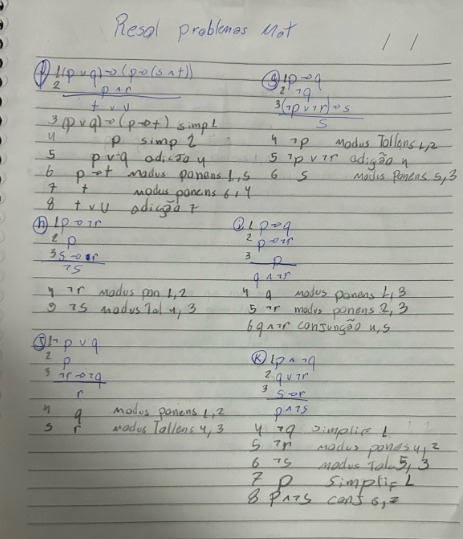 Resol problemas Mat
/ /
f) 1 (p∨q)→(p→(s∧t))
2 p∧r
t∨u
3 (p∨q)→(p→t) simp 1
4 p simp 2
5 p∨q adição 4
6 p→t modus ponens 1,5
7 t modus ponens 6,4
8 t∨u adição 7
g) 1 p→q
2 ¬q
3 (¬p∨r)→s
s
4 ¬p modus Tollens 1,2
5 ¬p∨r adição 4
6 s modus Ponens 5,3
h) 1 p→¬r
2 p
3 s→r
¬s
4 ¬r modus pon 1,2
5 ¬s modus Tol 4,3
i) 1 p→q
2 p→¬r
3 p
q∧¬r
4 q modus ponens 1,3
5 ¬r modus ponens 2,3
6 q∧¬r conjunção 4,5
j) 1 ¬p∨q
2 p
3 ¬r→¬q
r
4 q modus ponens 1,2
5 r modus Tollens 4,3
k) 1 p∧¬q
2 q∨¬r
3 s→r
p∧¬s
4 ¬q simplif 1
5 ¬r modus pones 4,2
6 ¬s modus Tol 5,3
7 p simplif 1
8 p∧¬s conj 6,7